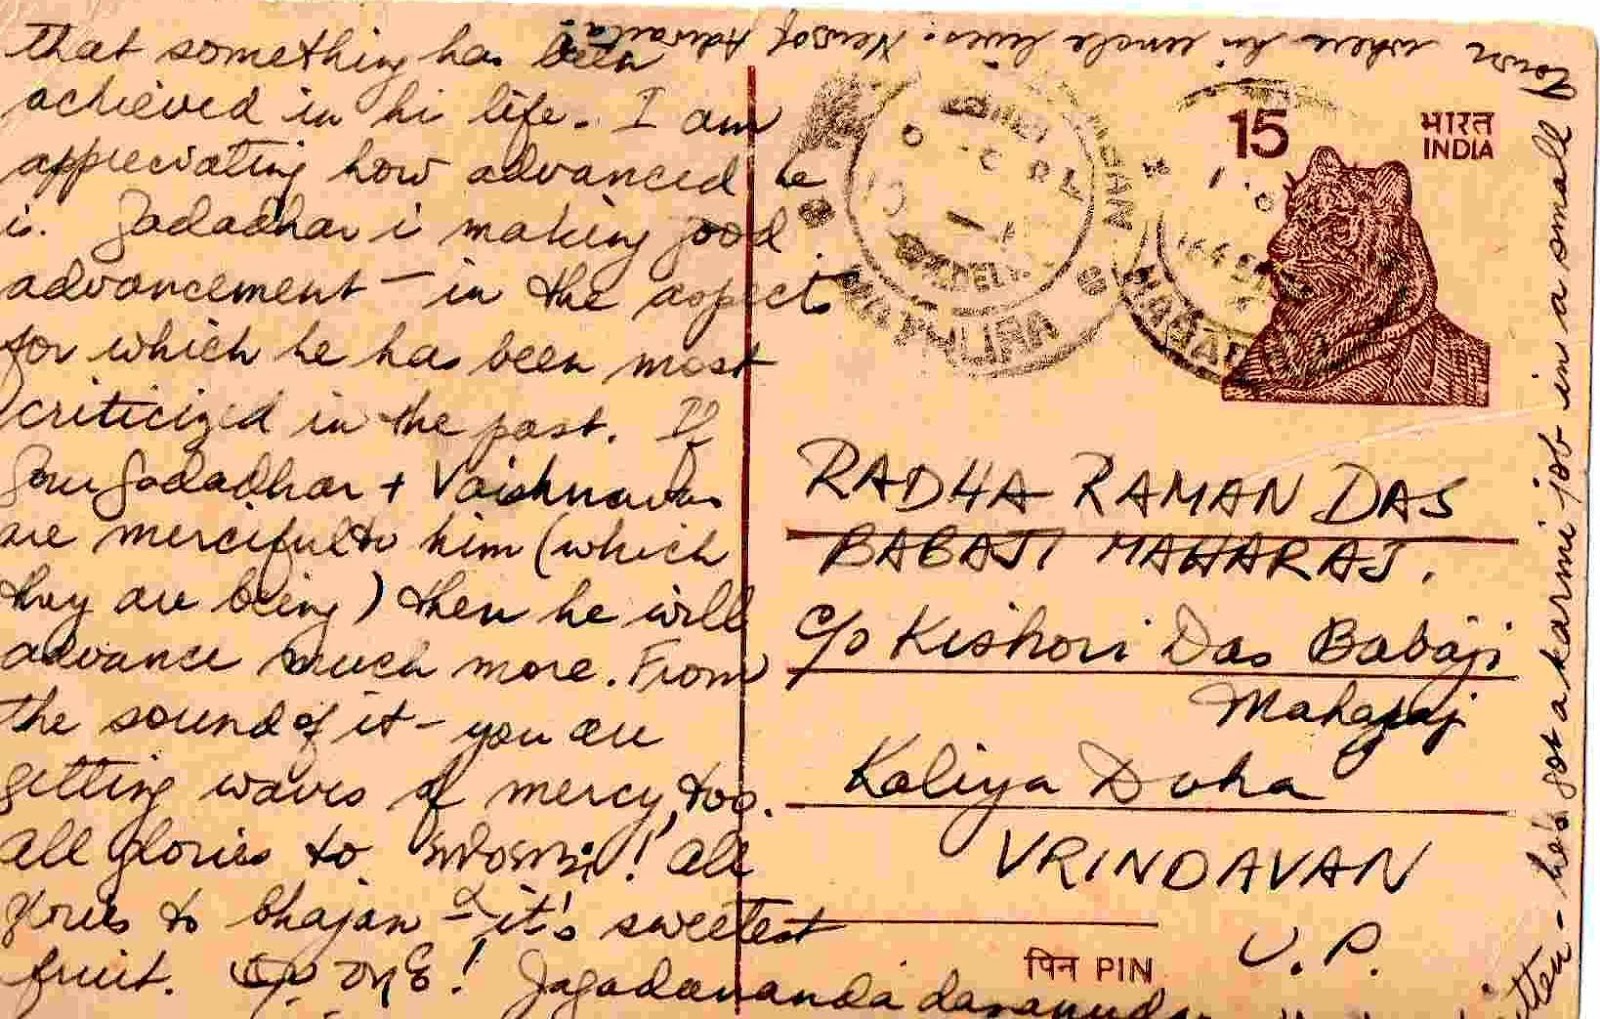 that something has been
achieved in hi life. I am
appreciating how advanced he
is. Gadadhar i making good
advancement - in the aspect
for which he has been most
criticized in the past. If
Gour Gadadhar + Vaishnavas
are merciful to him (which
they are being) then he will
advance much more. From
the sound of it - you are
getting waves of mercy, too.
All glories to ! All
glories to bhajan - it's sweetest
fruit.
Jagadananda
he's got a karmi job in a small
town where hi uncle lives. News of Adwaita!
15
भारत
INDIA
MATHURA
RADHA RAMAN DAS
BABAJI MAHARAJ.
c/o Kishori Das Babaji
Maharaj
Kaliya Doha
VRINDAVAN
U.P.
पिन PIN